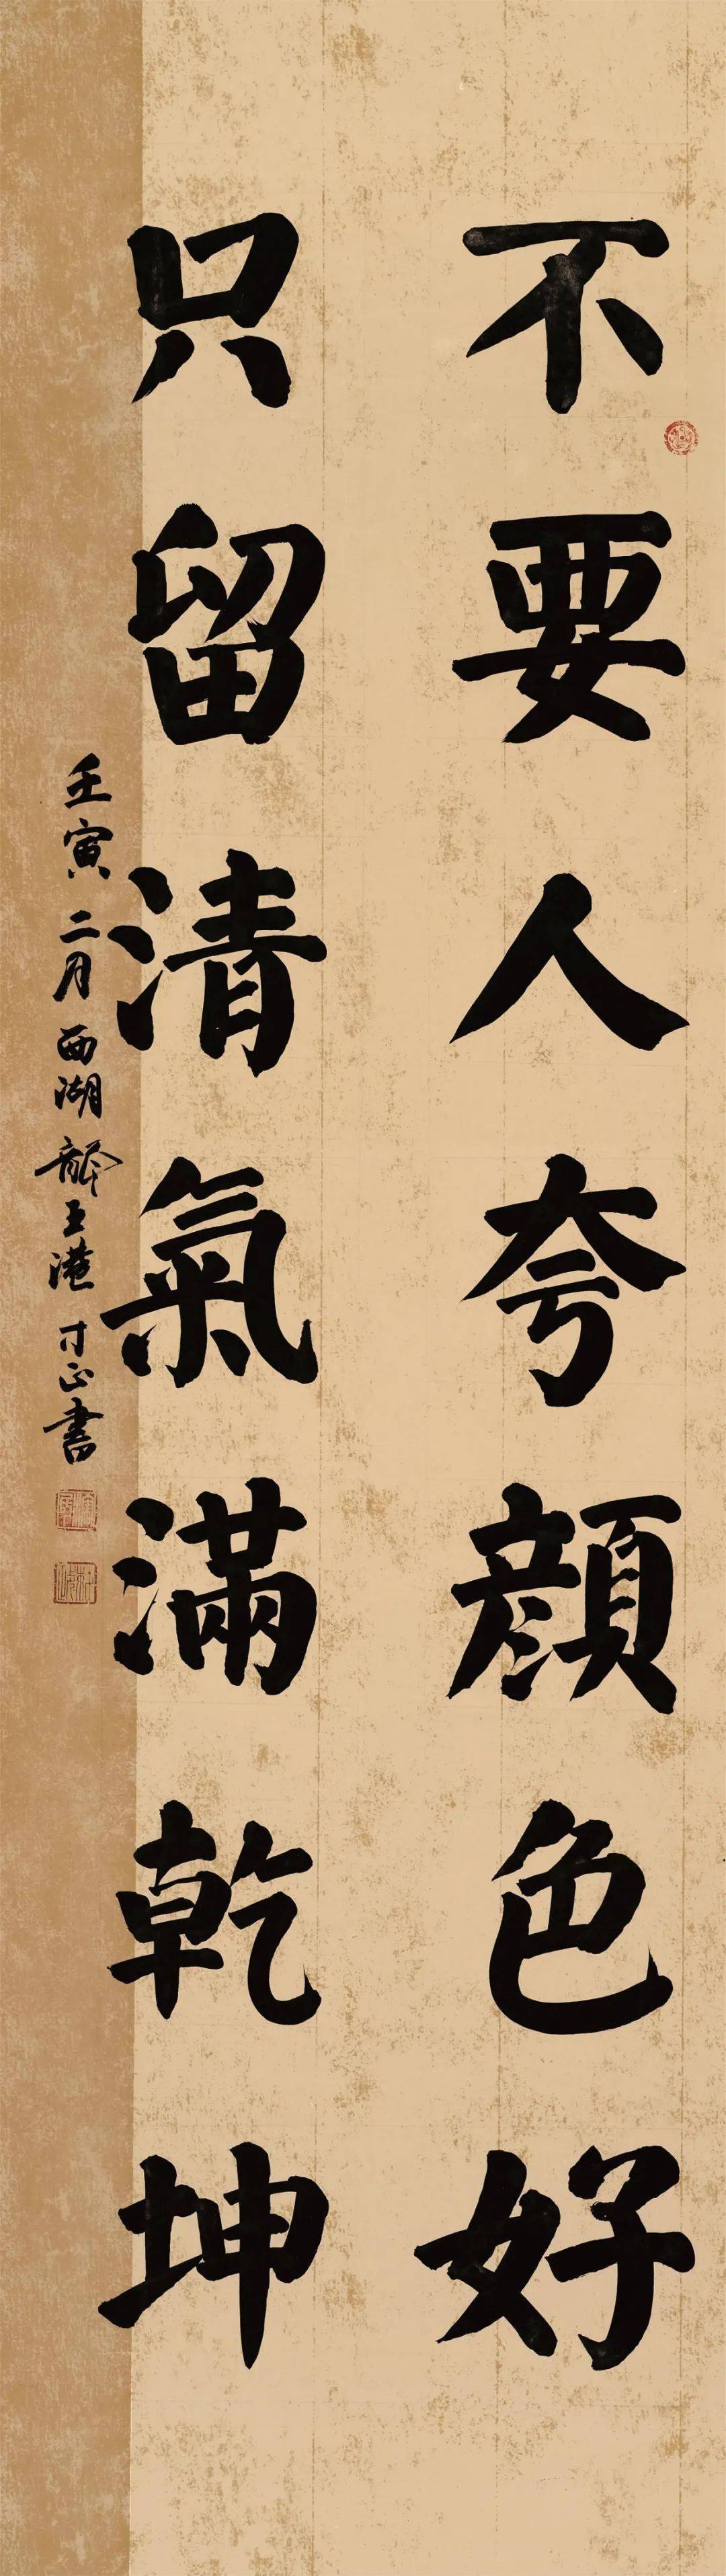 不要人夸顔色好
只留清氣滿乾坤
壬寅二月西湖龢王港寸心書